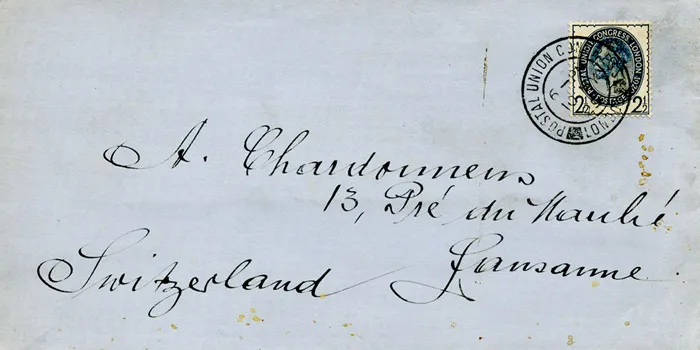 POSTAL UNION CONGRESS LONDON 1929
POSTAGE
2½ 2½
POSTAL UNION CON
LON
A. Chardonnens
13, Pré du Marché
Lausanne
Switzerland